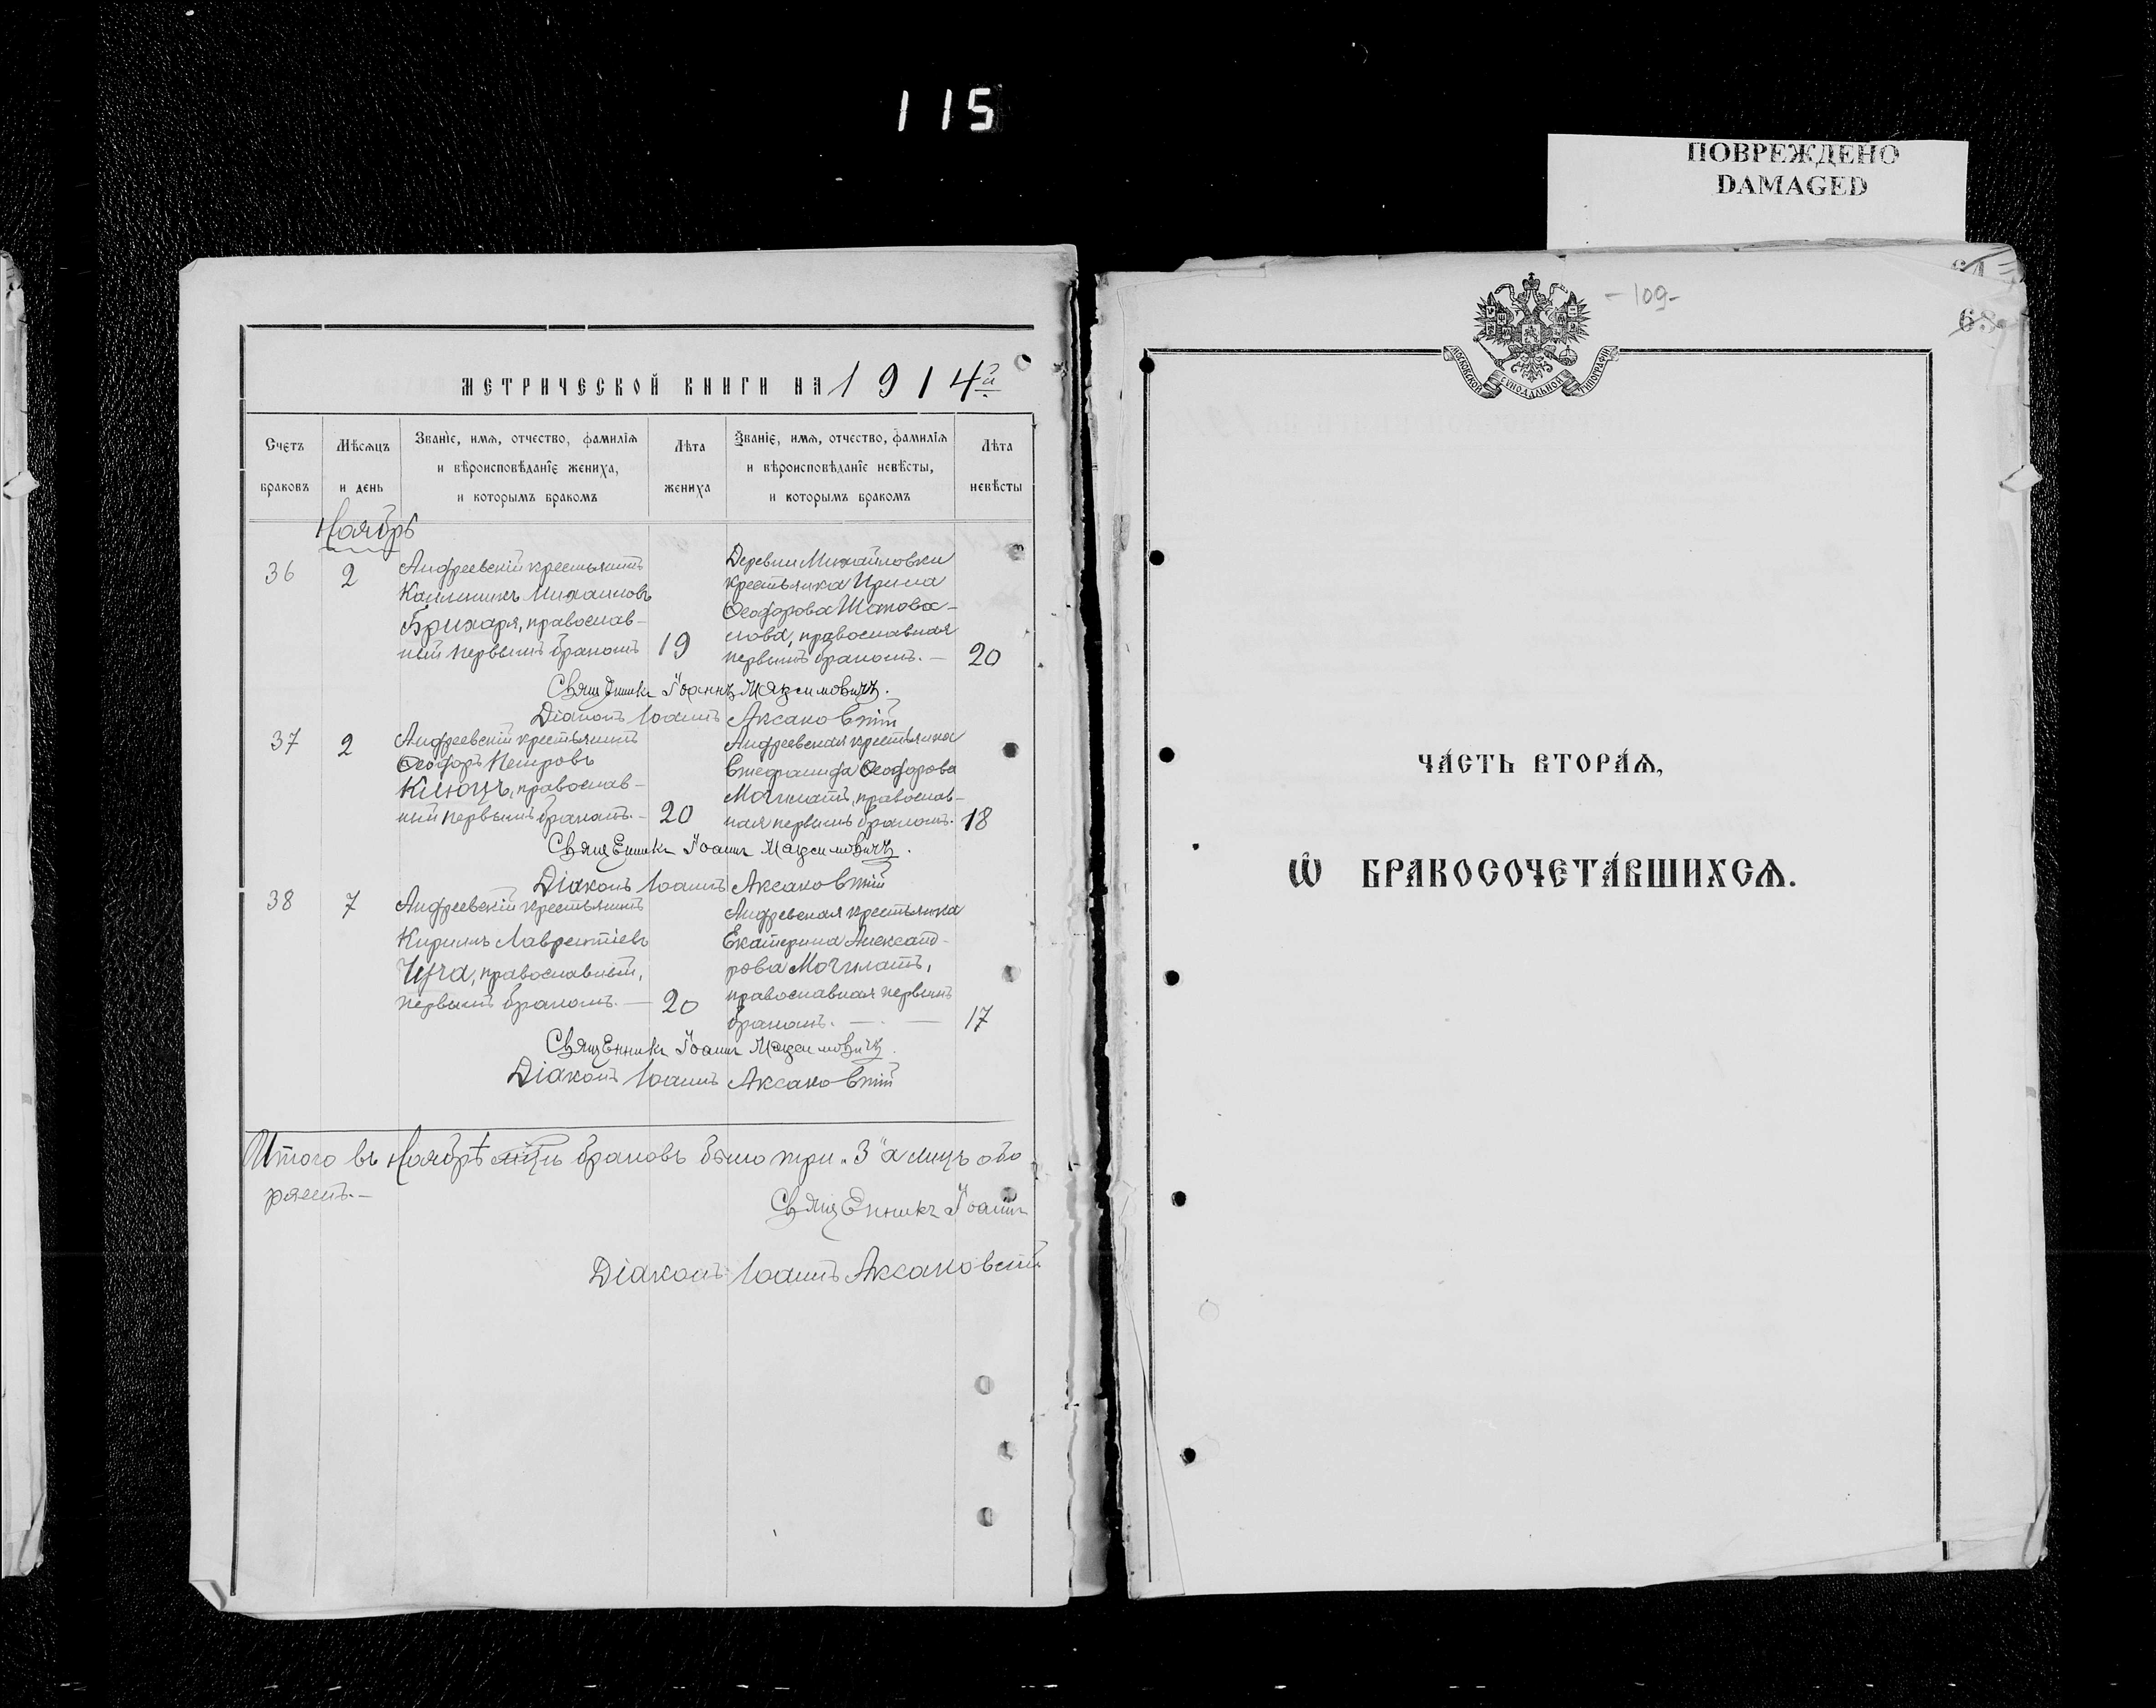 115
ПОВРЕЖДЕНО
DAMAGED
МЕТРИЧЕСКОЙ КНИГИ НА 1914й
Счетъ браковъ
Мѣсяцъ и день
Званіе, имя, отчество, фамилія
и вѣроисповѣданіе жениха,
и которымъ бракомъ
Лѣта жениха
Званіе, имя, отчество, фамилія
и вѣроисповѣданіе невѣсты,
и которымъ бракомъ
Лѣта невѣсты
Ноябрь
36
2
Андреевскій крестьянинъ
Калиникъ Михаиловъ
Брижаря, православ-
ный первымъ бракомъ
19
Деревни Михайловки
крестьянка Ирина
Ѳеодорова Шапова-
лова, православная
первымъ бракомъ. —
20
Священникъ Іоаннъ Максимовичъ.
Діаконъ Іоаннъ Аксаковскій
37
2
Андреевскій крестьянинъ
Ѳеодоръ Петровъ
Клюцъ, православ-
ный первымъ бракомъ. –
20
Андреевская крестьянка
Стефанида Ѳеодорова
Могилатъ, православ-
ная первымъ бракомъ.
18
Священникъ Іоаннъ Максимовичъ.
Діаконъ Іоаннъ Аксаковскій
38
7
Андреевскій крестьянинъ
Кириллъ Лаврентіевъ
православный,
первымъ бракомъ. —
20
Андреевская крестьянка
Екатерина Александ-
рова Могилатъ,
православная первымъ
бракомъ. — . —
17
Священникъ Іоаннъ Максимовичъ.
Діаконъ Іоаннъ Аксаковскій
Итого въ Ноябрѣ мцѣ браковъ было три "3" а лицъ обо
Священникъ Іоаннъ
Діаконъ Іоаннъ Аксаковскій
-109-
68
МОСКОВСКОЙ СѴНОДАЛЬНОЙ ТИПОГРАФІИ
ЧА́СТЬ ВТОРА́Ѧ,
Ѽ БРАКОСОЧЕТА́ВШИХСѦ.